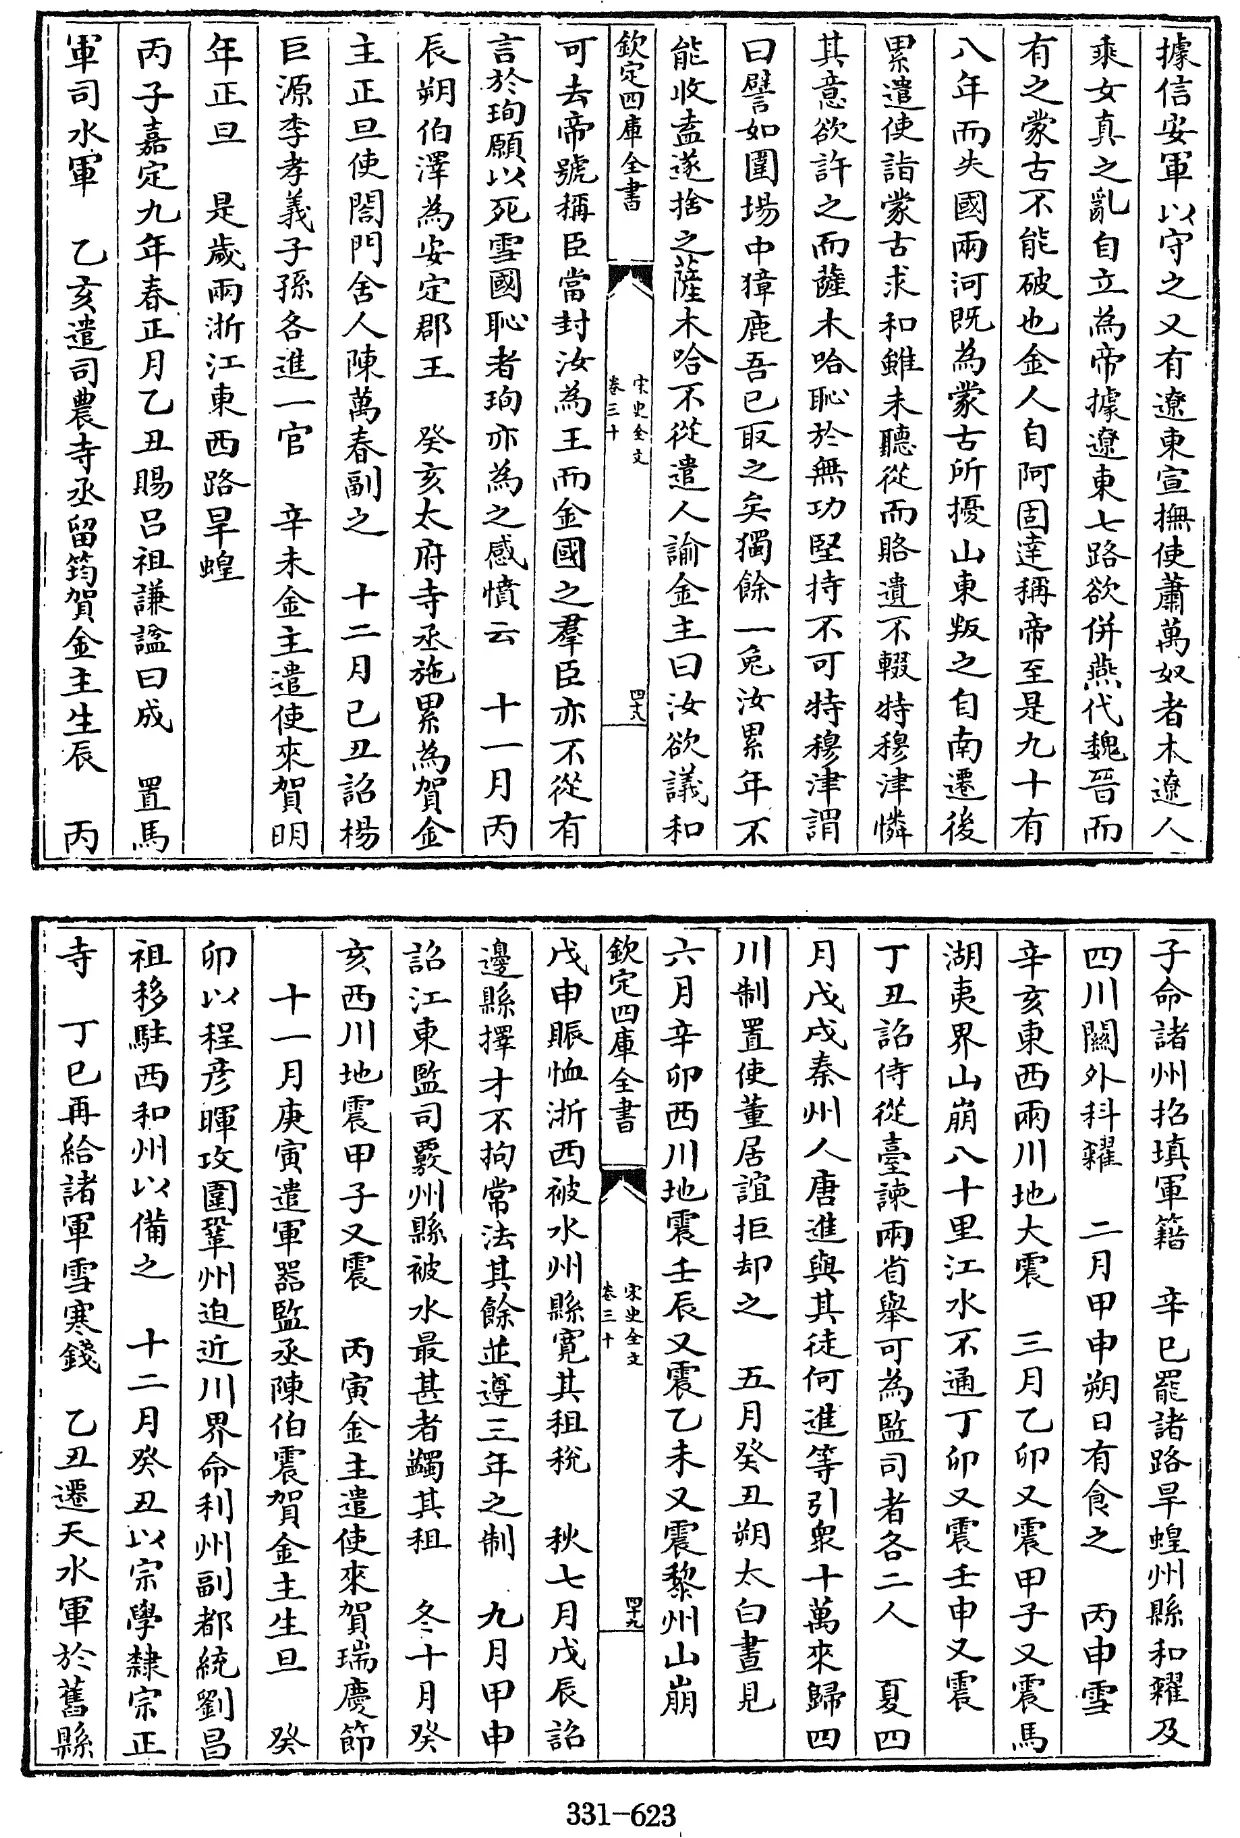 據信安軍以守之又有遼東宣撫使蕭萬奴者本遼人
乘女真之亂自立為帝據遼東七路欲併燕代魏晉而
有之蒙古不能破也金人自阿固達稱帝至是九十有
八年而失國兩河既為蒙古所擾山東叛之自南遷後
累遣使詣蒙古求和雖未聽從而賂遺不輟特穆津憐
其意欲許之而薩木哈恥於無功堅持不可特穆津謂
曰譬如圍場中獐鹿吾已取之矣獨餘一兔汝累年不
能收盍遂捨之薩木哈不從遣人諭金主曰汝欲議和
欽定四庫全書
宋史全文
卷三十
四十八
可去帝號稱臣當封汝為王而金國之羣臣亦不從有
言於珣願以死雪國恥者珣亦為之感憤云 十一月丙
辰朔伯澤為安定郡王 癸亥太府寺丞施累為賀金
主正旦使閤門舍人陳萬春副之 十二月己丑詔楊
巨源李孝義子孫各進一官 辛未金主遣使來賀明
年正旦 是歲兩浙江東西路旱蝗
丙子嘉定九年春正月乙丑賜呂祖謙諡曰成 置馬
軍司水軍 乙亥遣司農寺丞留筠賀金主生辰 丙
子命諸州招填軍籍 辛巳罷諸路旱蝗州縣和糴及
四川關外科糴 二月甲申朔日有食之 丙申雪
辛亥東西兩川地大震 三月乙卯又震甲子又震馬
湖夷界山崩八十里江水不通丁卯又震壬申又震
丁丑詔侍從臺諫兩省舉可為監司者各二人 夏四
月戊戌秦州人唐進與其徒何進等引衆十萬來歸四
川制置使董居誼拒却之 五月癸丑朔太白晝見
六月辛卯西川地震壬辰又震乙未又震黎州山崩
欽定四庫全書
宋史全文
卷三十
四十九
戊申賑恤浙西被水州縣寛其租稅 秋七月戊辰詔
邊縣擇才不拘常法其餘並遵三年之制 九月甲申
詔江東監司覈州縣被水最甚者蠲其租 冬十月癸
亥西川地震甲子又震 丙寅金主遣使來賀瑞慶節
十一月庚寅遣軍器監丞陳伯震賀金主生旦 癸
卯以程彦暉攻圍鞏州迫近川界命利州副都統劉昌
祖移駐西和州以備之 十二月癸丑以宗學隸宗正
寺 丁巳再給諸軍雪寒錢 乙丑遷天水軍於舊縣
331-623